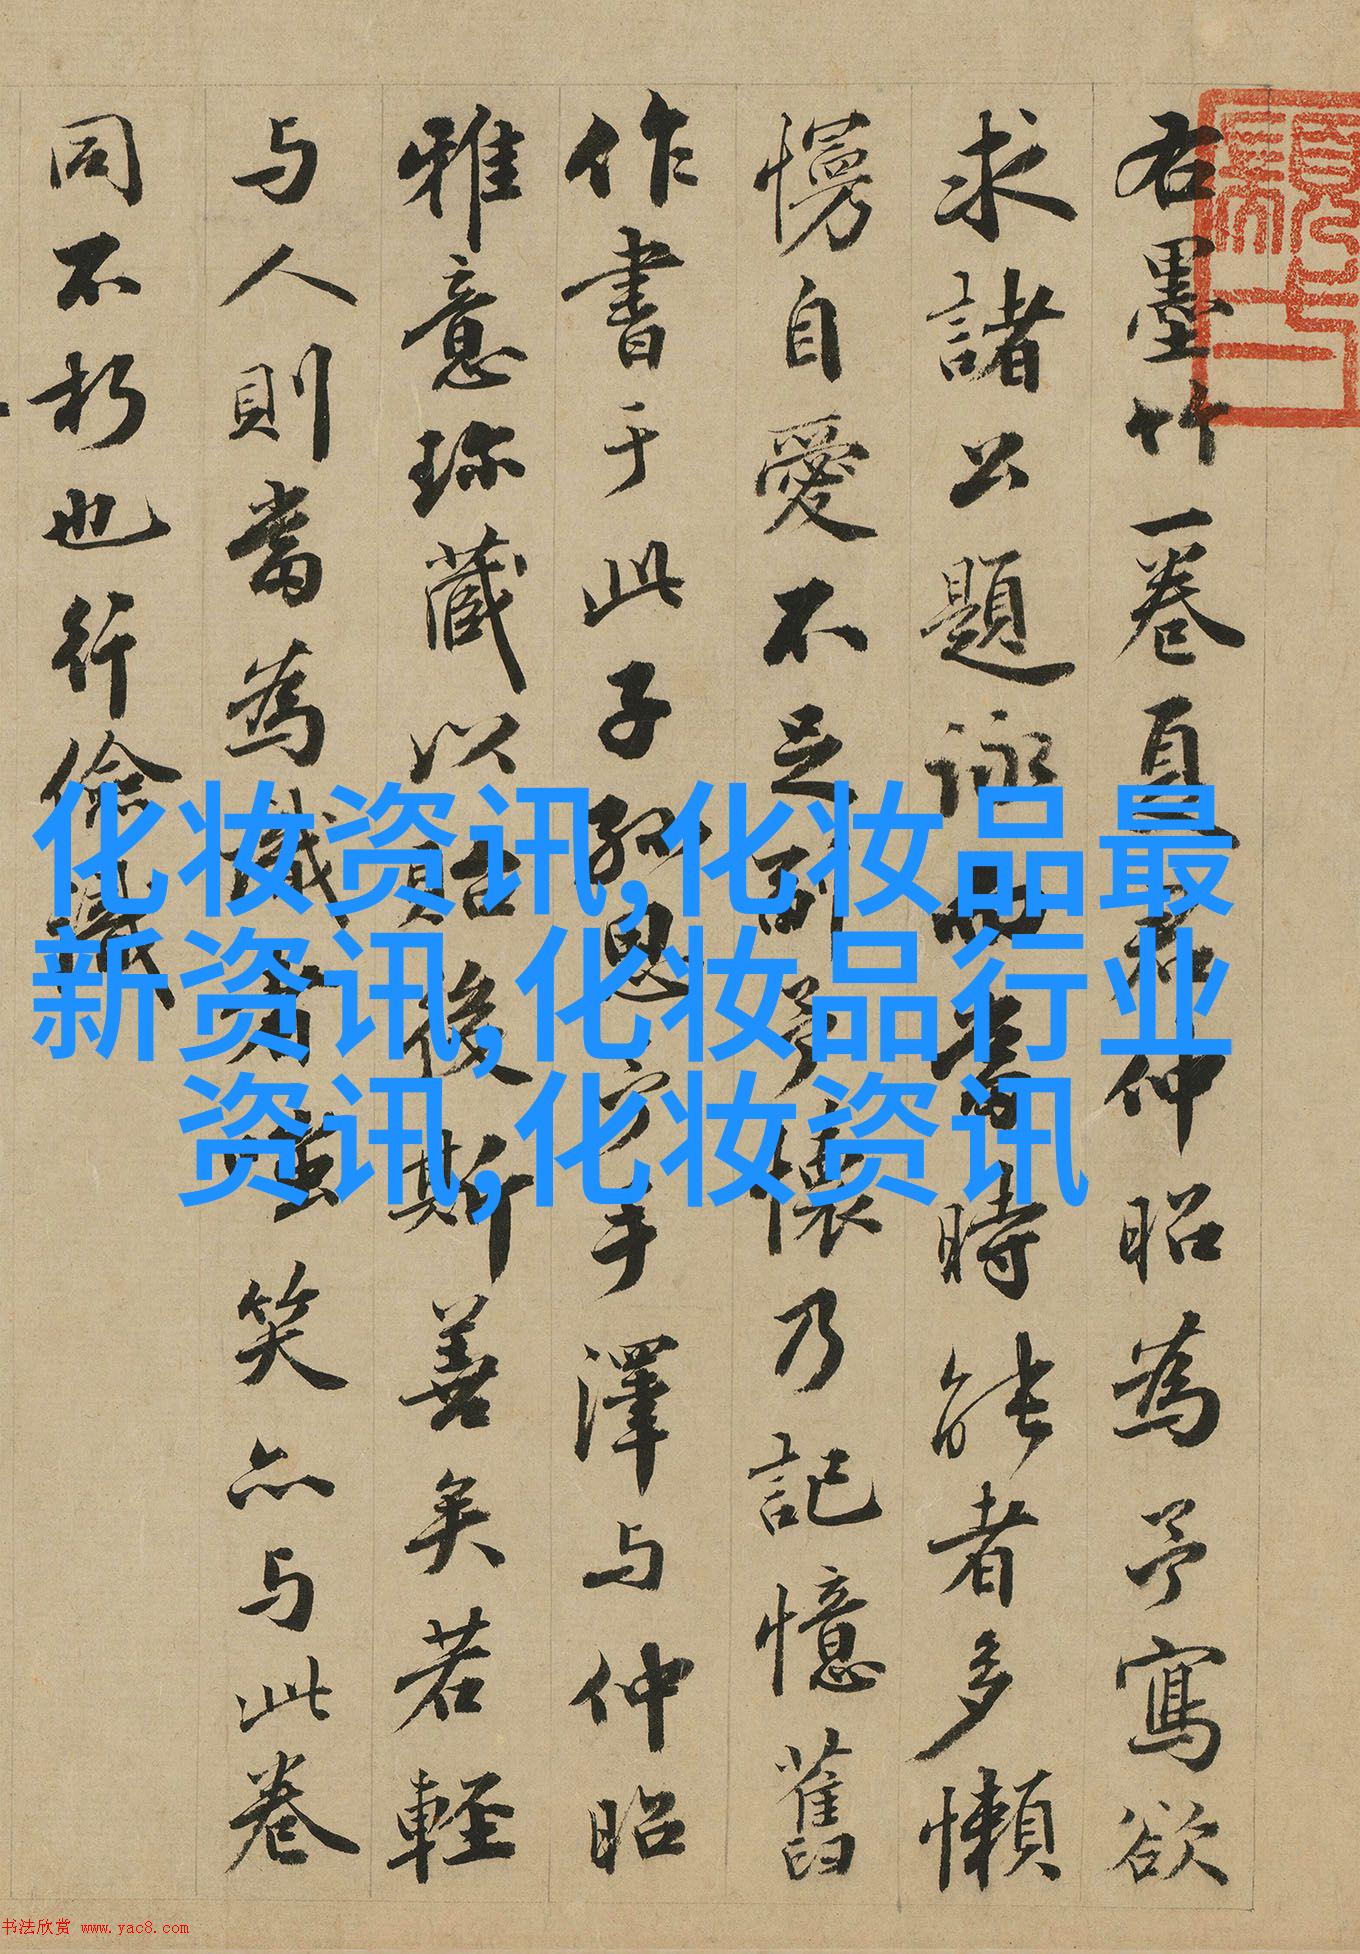 右墨竹一卷夏君仲昭為予寫欲
求諸公題詠
時能者多懶
慢自愛不足副予懷乃記憶舊
作書于此子孫思予手澤与仲昭
雅意珎藏以貽後斯善矣若輕
与人則當為識者
笑亦与此卷
同不朽也行儉識
化妆资讯,化妆品最
新资讯,化妆品行业
资讯,化妆资讯
书法欣赏 www.yac8.com